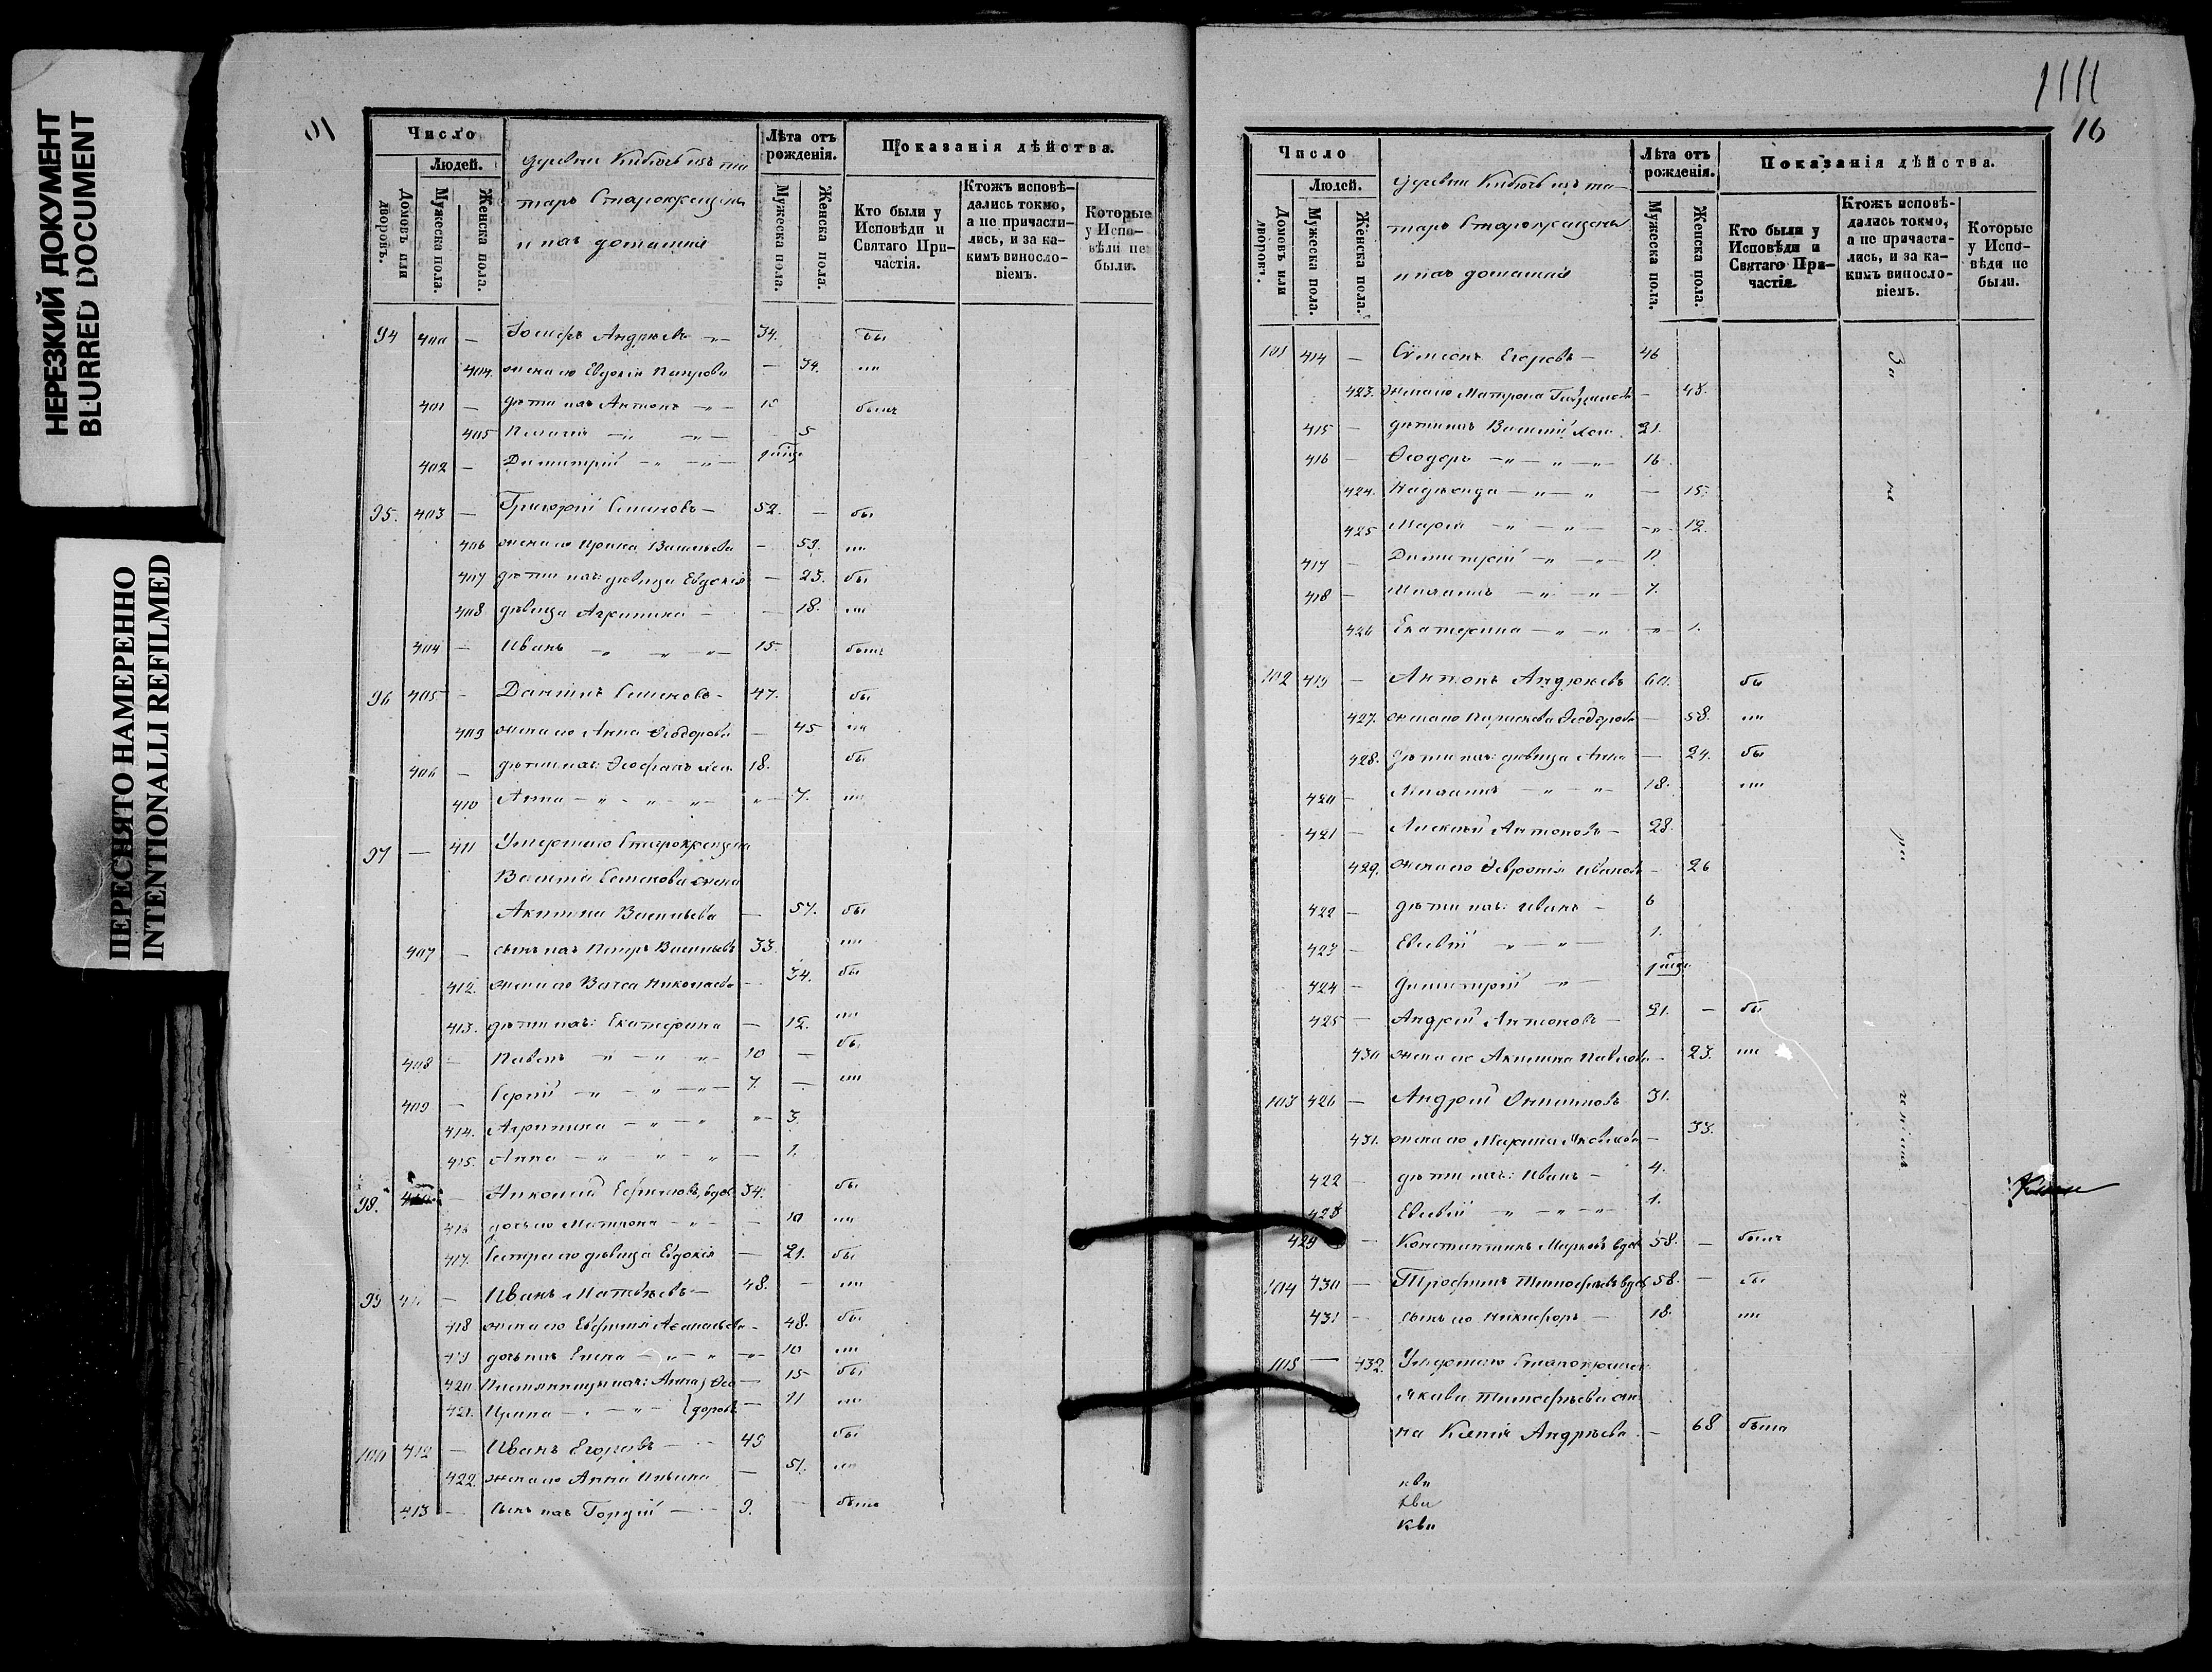 НЕРЕЗКИЙ ДОКУМЕНТ
BLURRED DOCUMENT
ПЕРЕСНЯТО НАМЕРЕННО
INTENTIONALLI REFILMED
Число
Людей.
Домовъ или дворовъ.
Мужеска пола.
Женска пола.
Деревни
таръ Старокрещены
и ихъ домашніе
Лѣта отъ рожденія.
Мужеска пола.
Женска пола.
Показанія дѣйства.
Кто были у Исповѣди и Святаго Причастія.
Ктожъ исповѣдались токмо, а не причастились, и за какимъ винословіемъ.
Которые у Исповѣди не были.
94 400 — Іосифъ Андреевъ 34. бы
404. жена его Евдокія Петрова — 34. ли
401 — дѣти ихъ Антонъ 10 былъ
405 Пелагія 5
402 — Димитрій
95. 403 — Григорій Семеновъ — 52. — бы
406 жена его Ирина Васильева — 53. ли
407 дѣти ихъ: дѣвица Евдокія — 23. бы
408 дѣвица Агрипина — 18. ли
404 — Иванъ 15. былъ
96 405 — Даніилъ Семеновъ — 47. бы
409 жена его Анна Ѳеодорова — 45 ли
406 — дѣти ихъ: Ѳеофанъ 18. бы
410 Анна — " — 7. ли
97 — 411 Умершаго Старокрещена
Василія Семенова жена
Акилина Васильева — 57. бы
407 — сынъ ихъ Петръ Васильевъ 33. ли
412. жена его Васса Николаева — 34. бы
413. дѣти ихъ: Екатерина — 12. ли
408 — Павелъ 10 — бы
409 — Сергій 7. — ли
414. Агрипина 3.
415. Анна 1.
98. — Ефимовъ, вдов. 34. бы
416 дочь его Матрона — 10 ли
417. Сестра его дѣвица Евдокія — 21. бы
99 — Иванъ Матвѣевъ — 48. — ли
418 жена его Евфимія — 48. бы
419 дочь ихъ Елена 10 ли
420 Племянницы ихъ: Анна } Ѳео — 15 бы
421. Ирина } доров. — 11 ли
100 412 — Иванъ Егоровъ 45 бы
422 жена его Анна Ильина — 51. ли
413 — сынъ ихъ Гордій 9. — былъ
1111
16
Число
Людей.
Домовъ или дворовъ.
Мужеска пола.
Женска пола.
Деревни
таръ Старокрещены
и ихъ домашніе
Лѣта отъ рожденія.
Мужеска пола.
Женска пола.
Показанія дѣйства.
Кто были у Исповѣди и Святаго Причастія.
Ктожъ исповѣдались токмо, а не причастились, и за какимъ винословіемъ.
Которые у Исповѣди не были.
101 414 — Сѵмеонъ Егоровъ — 46 За
423. жена его Матрона — 48.
415 — дѣти ихъ Василій 21.
416 — Ѳеодоръ 16
424. Надежда — 15. не
425 Марія 12.
417 — Димитрій
418 — Михаилъ 7.
426 Екатерина 1.
102 419 — Антонъ Андреевъ 60. бы
427. жена его Параскева Ѳеодорова — 58. ли
428. дѣти ихъ: дѣвица Анна — 24. бы
420 — Михаилъ 18. ли
421 — Алексѣй Антоновъ — 28.
429. жена его Февронія Иванова — 26
422 — дѣти ихъ: Иванъ — 6
423 — Евсевій 1.
424 — Димитрій
425 — Андрей Антоновъ — 21. — бы
430 жена его Акилина Павлова — 23. ли
103 426 — Андрей 31.
431. жена его Марія Яковлева — 33.
422 — дѣти ихъ: Иванъ — 4.
428 Евсевій 1.
429 — Константинъ Марковъ вдов. 58. — былъ
104 430 — Трофимъ Тимофеевъ вдов. 58. — бы
431 — сынъ его Никифоръ — 18. ли
105 — 432. Умершаго Старокрещен
Якова Тимофѣева же
на Ксенія Андреева — 68 была